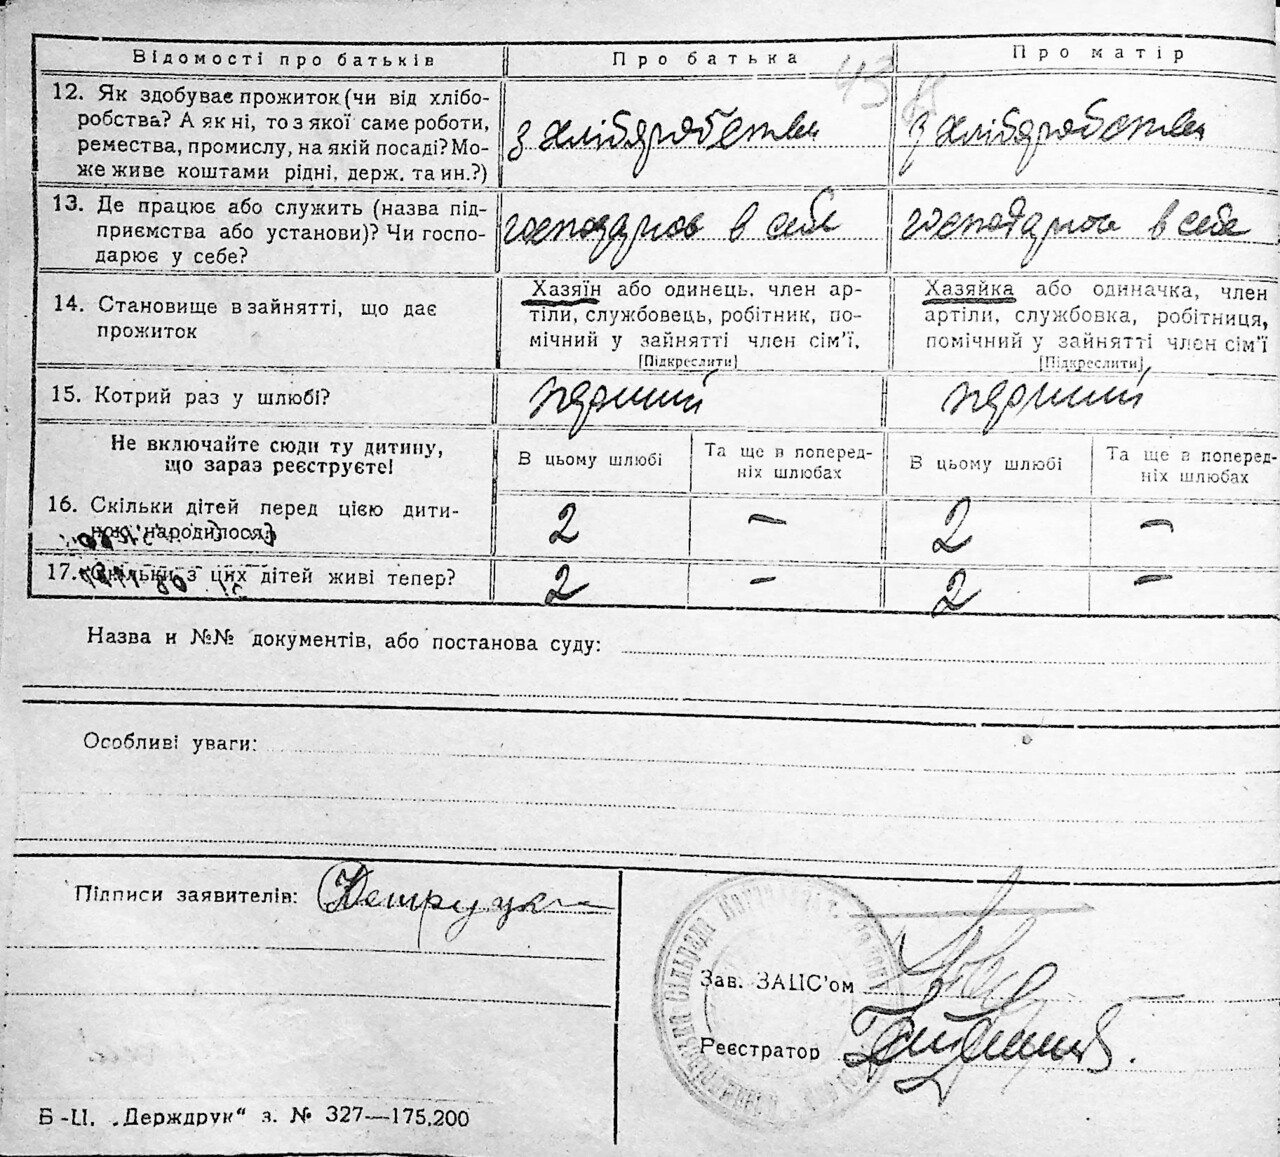 Відомості про батьків Про батька Про матір
43
12. Як здобуває прожиток (чи від хлібо-
робства? А як ні, то з якої саме роботи,
ремества, промислу, на якій посаді? Мо-
же живе коштами рідні, держ. та ин.?)
з хліборобства з хліборобства
13. Де працює або служить (назва під-
приємства або установи)? Чи госпо-
дарює у себе?
господарює в себе господарює в себе
14. Становище в зайнятті, що дає
прожиток
Хазяїн або одинець, член ар-
тіли, службовець, робітник, по-
мічний у зайнятті член сім'ї,
[Підкреслити]
Хазяйка або одиначка, член
артіли, службовка, робітниця,
помічний у зайнятті член сім'ї
[Підкреслити]
15. Котрий раз у шлюбі? перший перший
Не включайте сюди ту дитину,
що зараз реєструєте!
В цьому шлюбі
Та ще в поперед-
ніх шлюбах
В цьому шлюбі
Та ще в поперед-
ніх шлюбах
16. Скільки дітей перед цією дити-
ною народилося?
2 – 2 –
17. Скільки з цих дітей живі тепер? 2 – 2 –
Назва и №№ документів, або постанова суду:
Особливі уваги:
Підписи заявителів:
Зав. ЗАЦС'ом
Реєстратор
Б-Ц. „Держдрук“ з. № 327—175.200